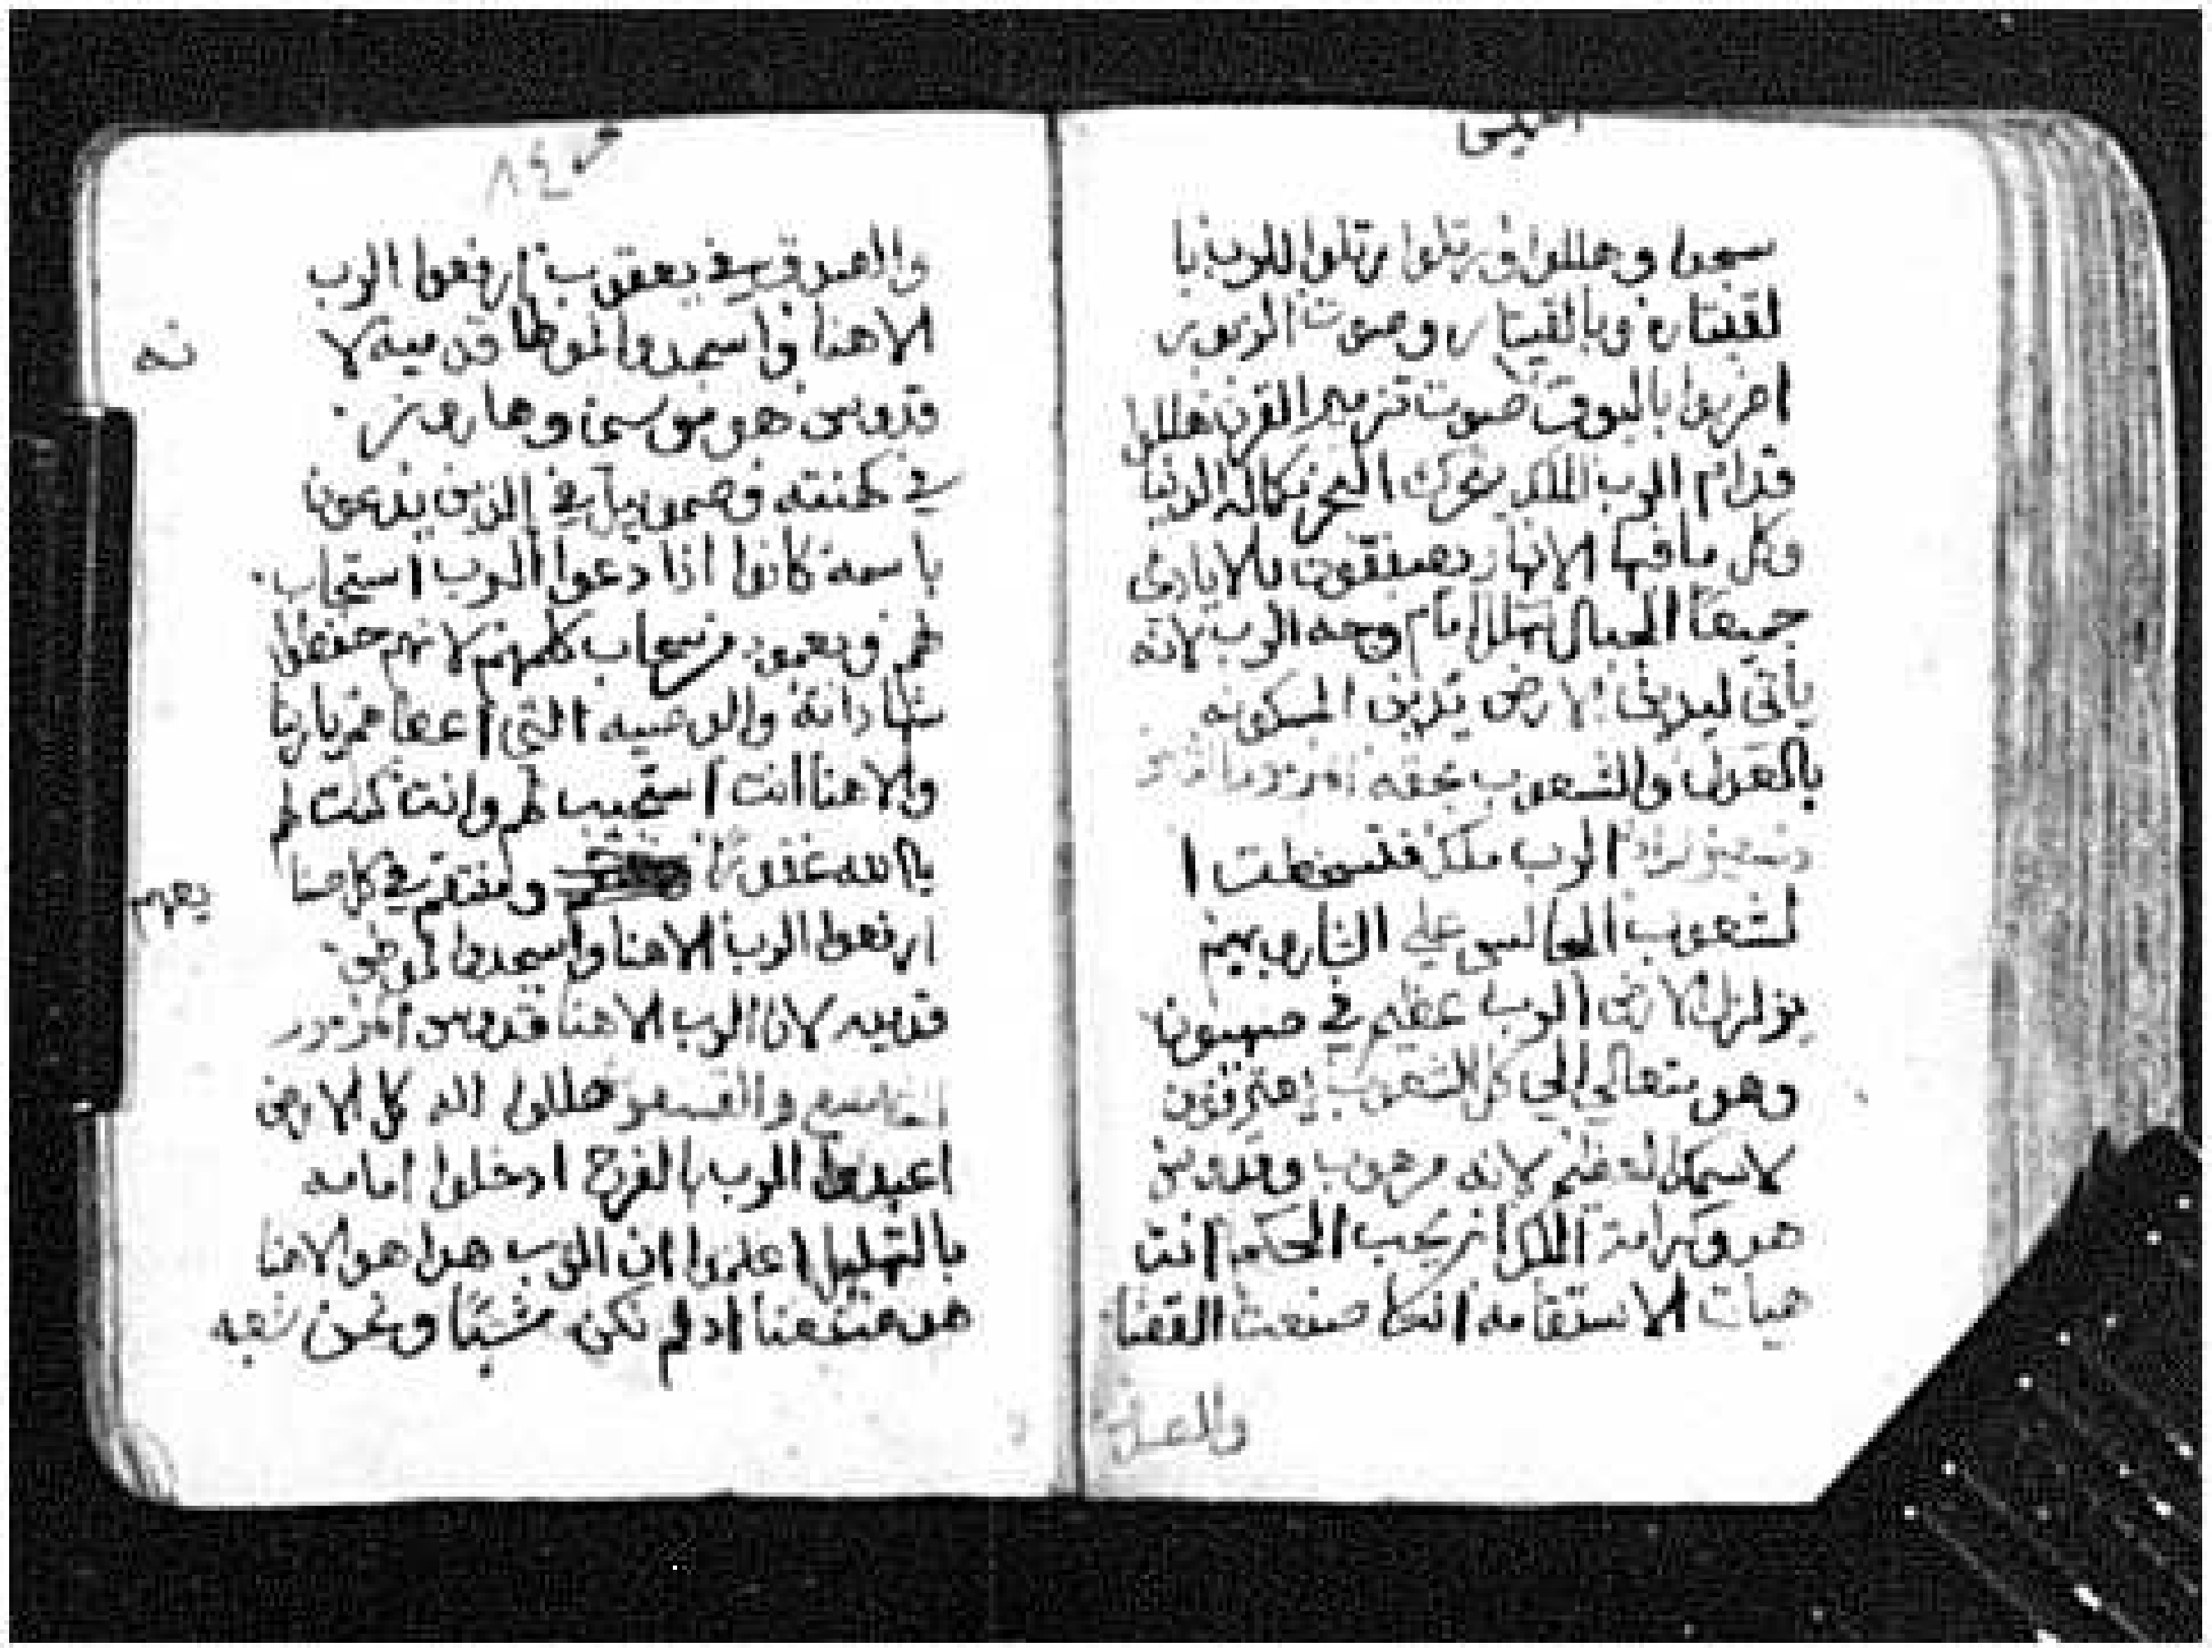 سبحوا وهللوا ورتلوا رتلوا للرب با
لقيتاره وبالقيتاره وصوت المزمور
اضربوا بالبوق صوت تزمير القرن هللوا
قدام الرب الملك يتحرك البحر بكماله الدنيا
وكل ما فيها الانهار تصفقون بالايادي
جميعا الجبال تهلل امام وجه الرب لانه
ياتي ليدين الارض يدين المسكونه
بالعدل والشعوب بحقه
الرب ملك فسخطت ا
لشعوب الجالس علي الشاروبيم
يزلزل الارض الرب عظيم في صهيون
وهو متعالي الي كل الشعوب يعترفون
لاسمك العظيم لانه مرهوب وقدوس
هو وكرامة الملك ان يحب الحكم انت
هيات الاستقامه انت صنعت القضا
والعدل
٨٤
والعدل في يعقوب ارفعوا الرب
الاهنا واسجدوا لموطا قدميه لا
نه
قدوس هو موسي وهارون
في كهنته وصمويل في الذين يدعون
باسمه كانوا اذا دعوا الرب استجاب
لهم وبعمود سحاب كلمهم لانهم حفظوا
شهاداته والوصيه التي اعطاهم يا ربنا
والاهنا انت استجيب لهم وانت كنت لهم
يا الله غفورا ومنتقم في كل صنا
يعهم
ارفعوا الرب الاهنا واسجدوا لموطي
قدميه لان الرب الاهنا قدوس المزمور
التاسع والتسعون هللوا لله كل الارض
اعبدوا الرب بالفرح ادخلوا امامه
بالتهليل اعلموا ان الرب هدا هو الاهنا
هو صنعنا اد لم نكن شيا ونحن شعبه